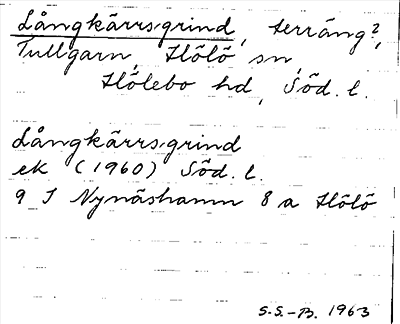 Långkärrsgrind, terräng?,
Tullgarn, Hölö sn,
Hölebo hd, Söd. l.
Långkärrsgrind
ek (1960) Söd. l.
9 I Nynäshamn 8 a Hölö
S.S.-B. 1963